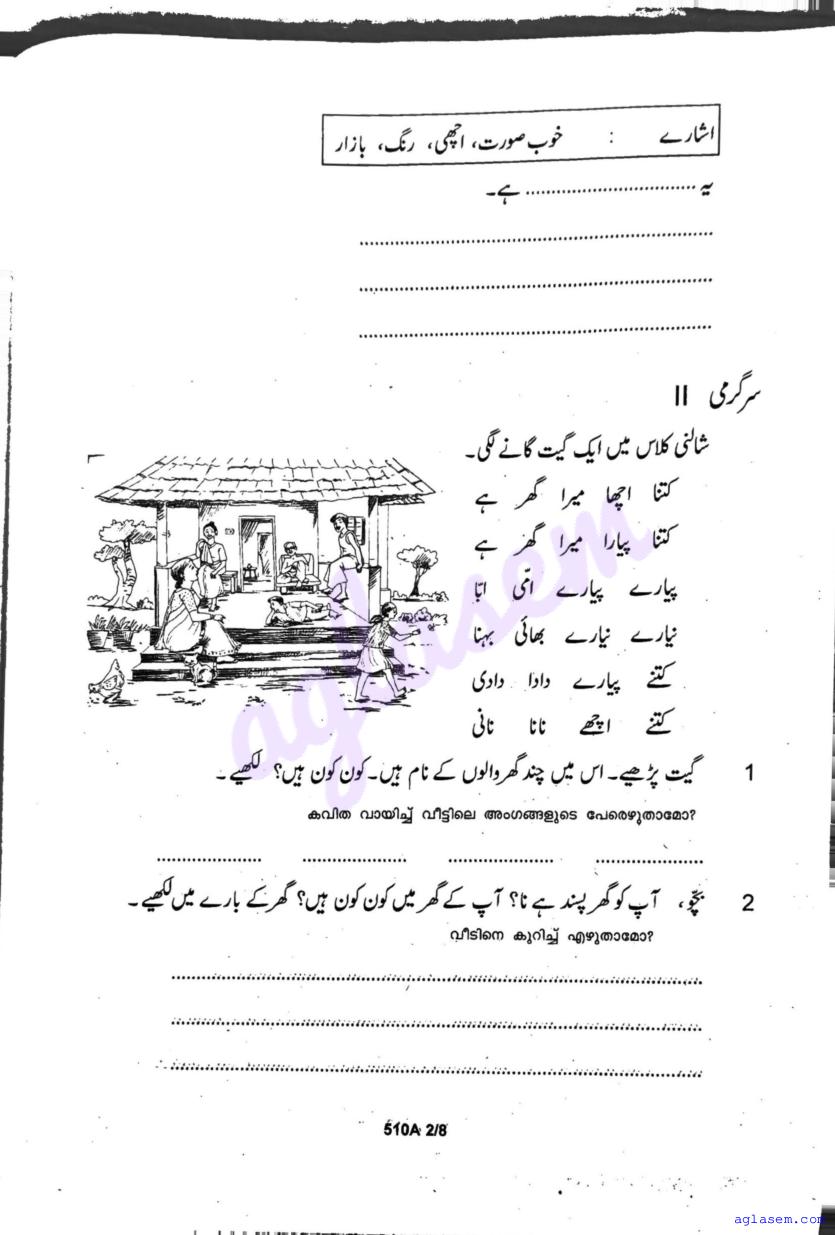 اشارے : خوب صورت، اچھی، رنگ، بازار
یہ ................................. ہے۔
......................................................................
......................................................................
......................................................................
سرگرمی II
شالنی کلاس میں ایک گیت گانے لگی۔
کتنا اچھا میرا گھر ہے
کتنا پیارا میرا گھر ہے
پیارے پیارے امّی ابّا
نیارے نیارے بھائی بہنا
کتنے پیارے دادا دادی
کتنے اچھے نانا نانی
1 گیت پڑھیے۔ اس میں چند گھر والوں کے نام ہیں۔ کون کون ہیں؟ لکھیے۔
കവിത വായിച്ച് വീട്ടിലെ അംഗങ്ങളുടെ പേരെഴുതാമോ?
..................... ..................... ..................... .....................
2 بچّو، آپ کو گھر پسند ہے نا؟ آپ کے گھر میں کون کون ہیں؟ گھر کے بارے میں لکھیے۔
വീടിനെ കുറിച്ച് എഴുതാമോ?
......................................................................
......................................................................
......................................................................
510A 2/8
aglasem
aglasem.com